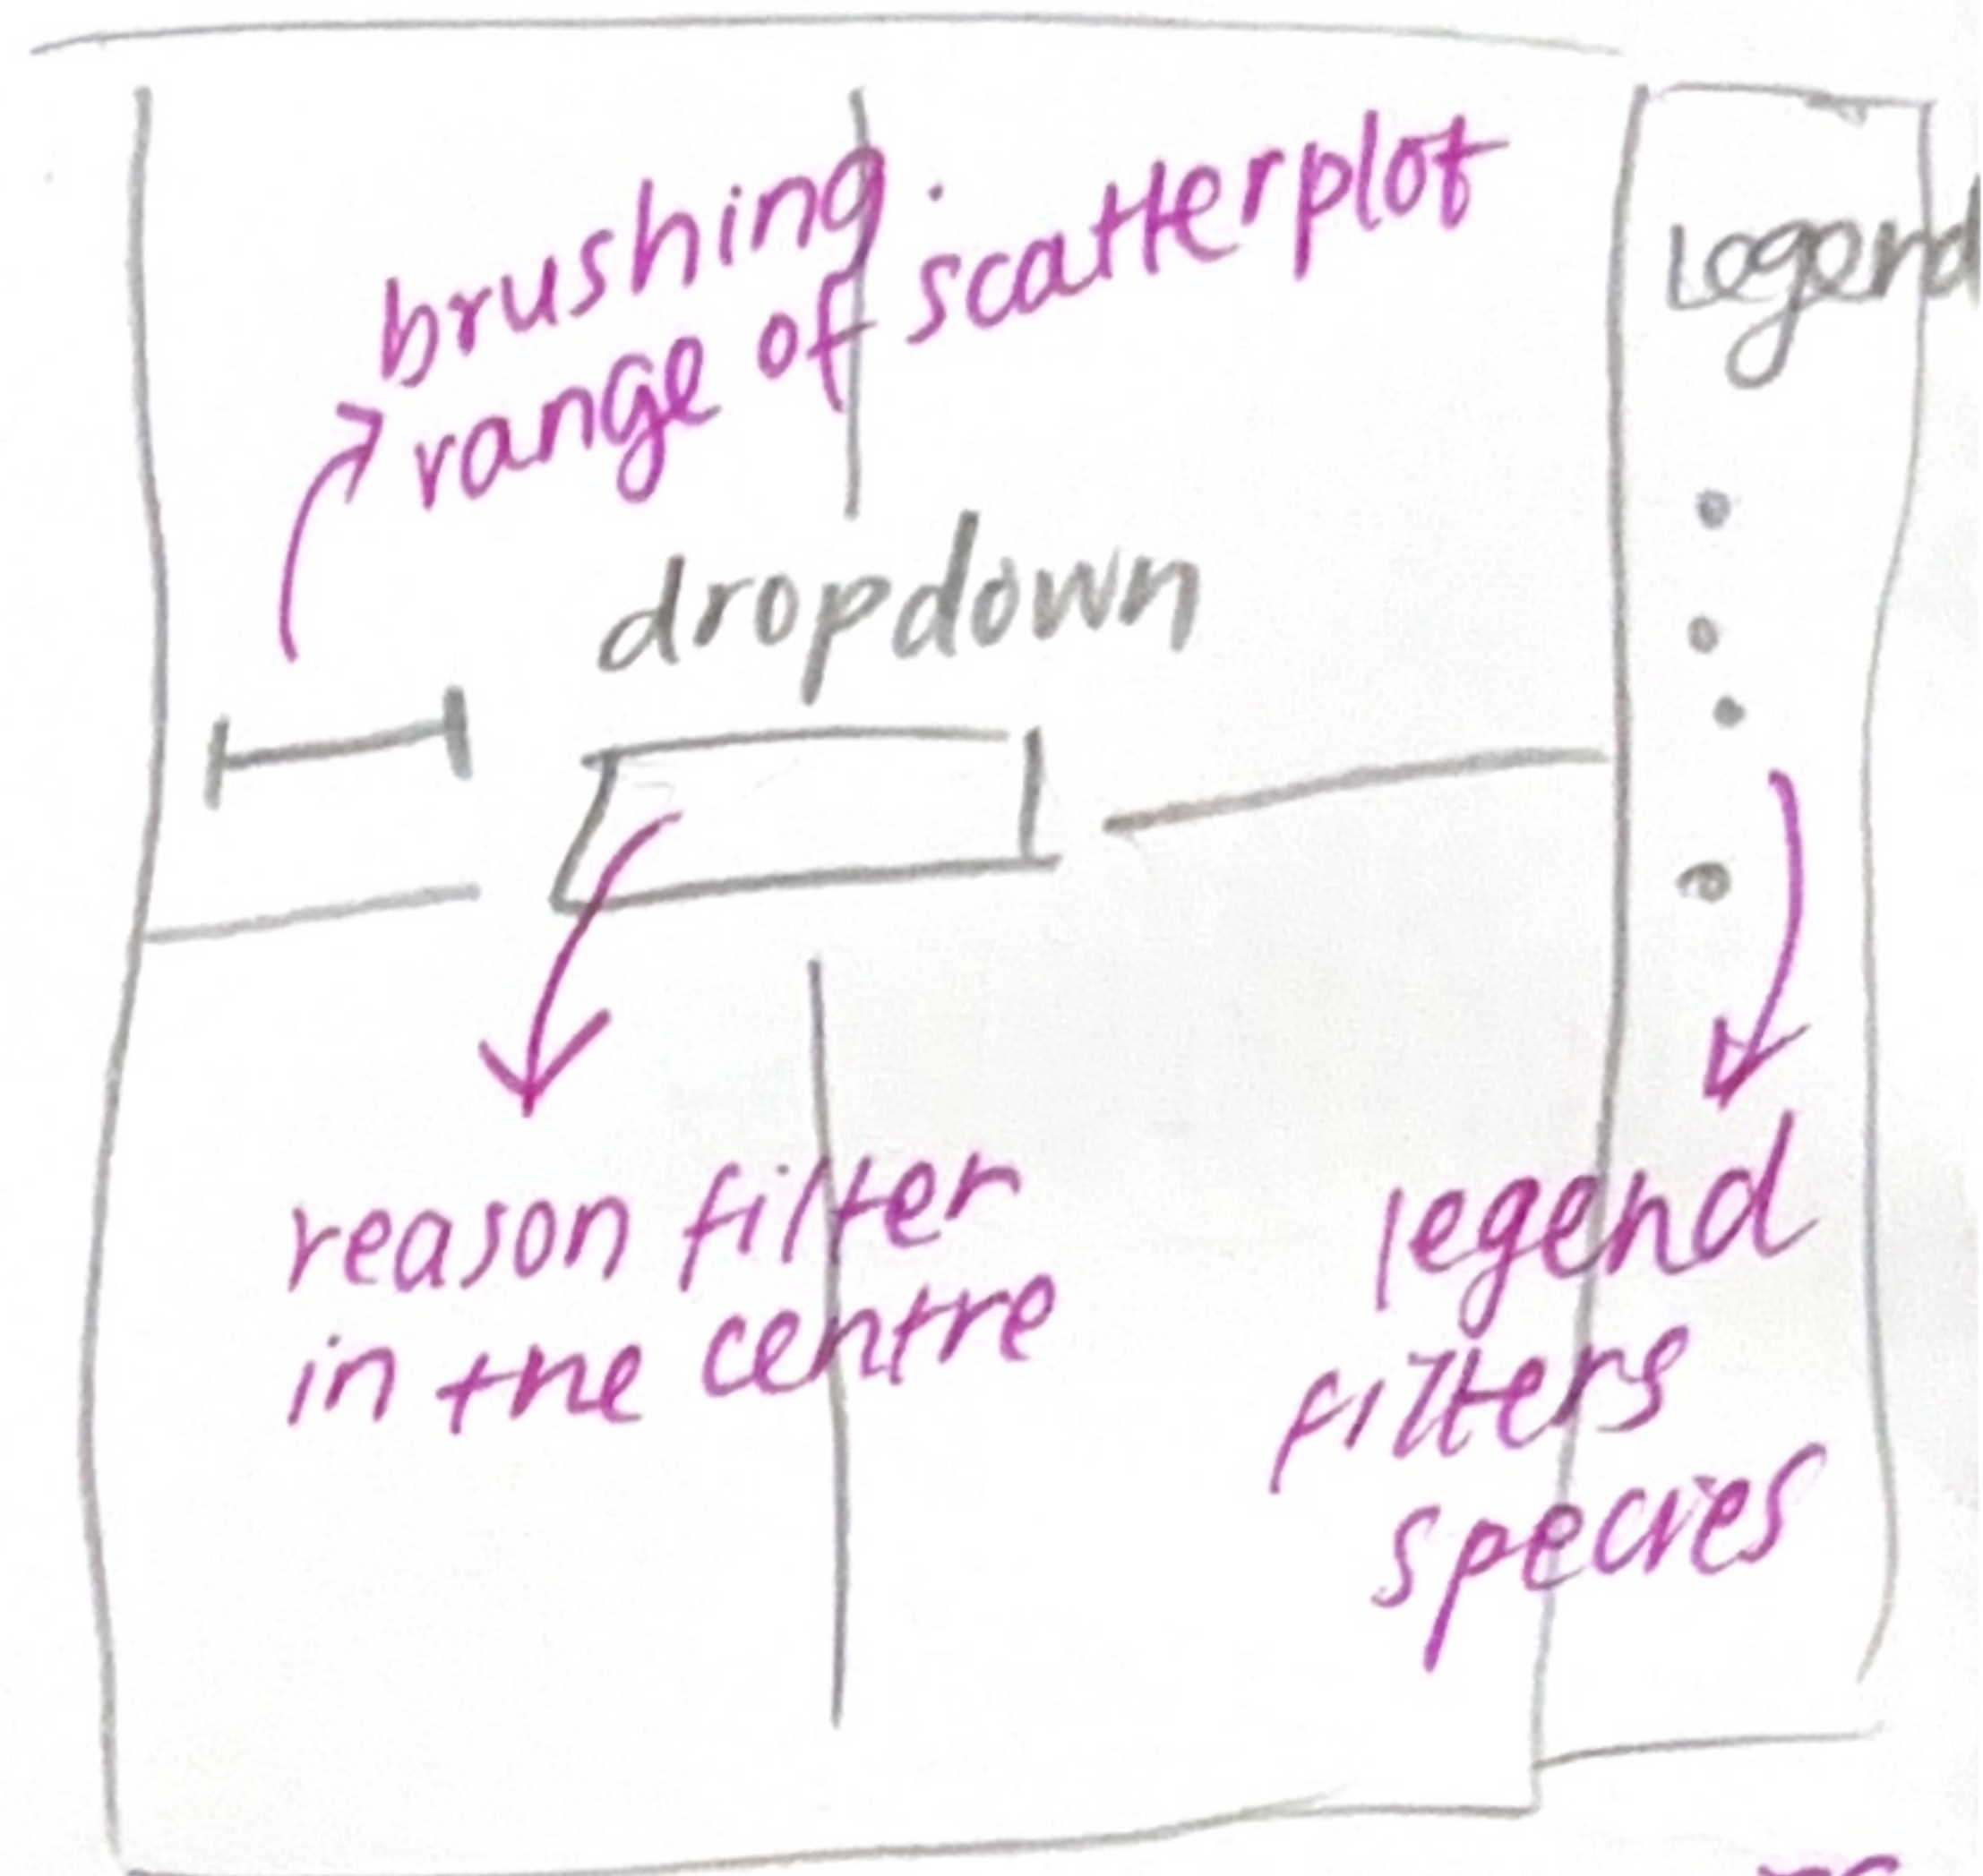 brushing
range of scatterplot
Legend
dropdown
reason filter
in the centre
legend
filters
species